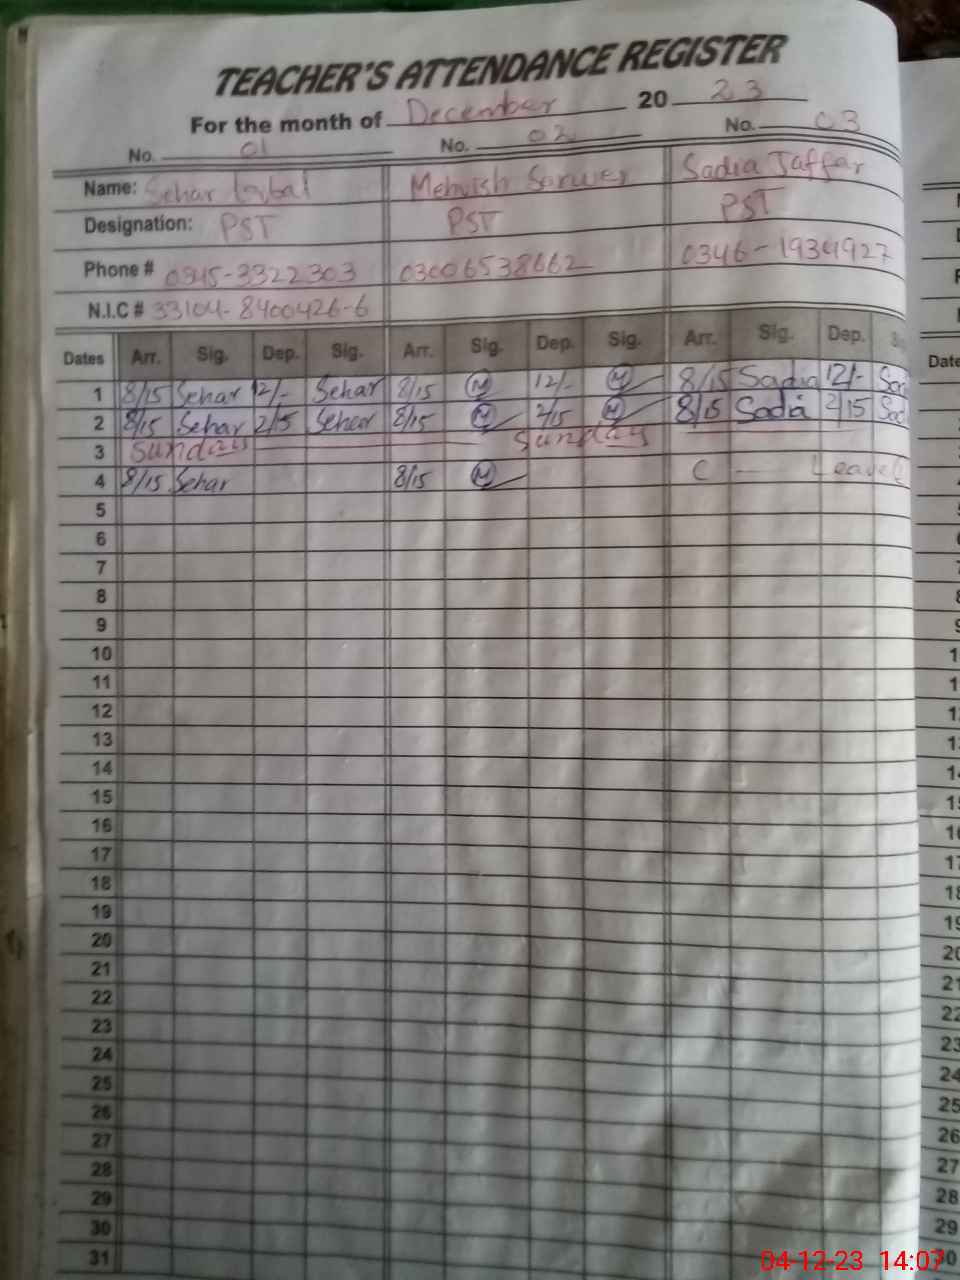 TEACHER'S ATTENDANCE REGISTER
For the month of December 20 23
No. 01 No. 02 No. 03
Name: Sehar Iqbal Mehvish Sarwer Sadia Jaffar
Designation: PST PST PST
Phone # 0345-3322303 03006538662 0346-1934927
N.I.C # 33104-8400426-6
Dates Arr. Sig. Dep. Sig. Arr. Sig. Dep. Sig. Arr. Sig. Dep.
1 8/15 Sehar 12/- Sehar 8/15 M 12/- M 8/15 Sadia 12/-
2 8/15 Sehar 2/15 Sehar 8/15 M 2/15 M 8/15 Sadia 2/15
3 Sunday Sunday
4 8/15 Sehar 8/15 M C - Leave
5
6
7
8
9
10
11
12
13
14
15
16
17
18
19
20
21
22
23
24
25
26
27
28
29
30
31
04-12-23 14:07